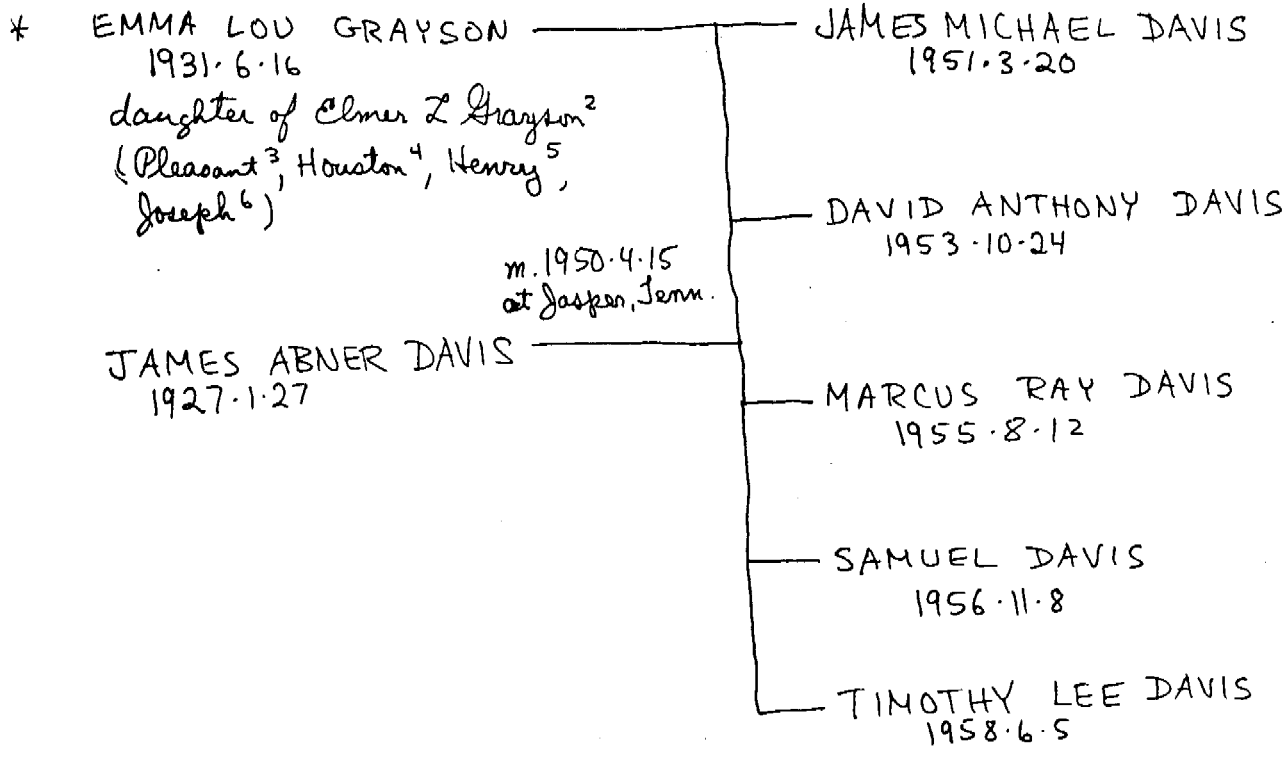 * EMMA LOU GRAYSON
1931·6·16
daughter of Elmer L Grayson²
(Pleasant³, Houston⁴, Henry⁵,
Joseph⁶)
m. 1950·4·15
at Jasper, Tenn.
JAMES ABNER DAVIS
1927·1·27
JAMES MICHAEL DAVIS
1951·3·20
DAVID ANTHONY DAVIS
1953·10·24
MARCUS RAY DAVIS
1955·8·12
SAMUEL DAVIS
1956·11·8
TIMOTHY LEE DAVIS
1958·6·5